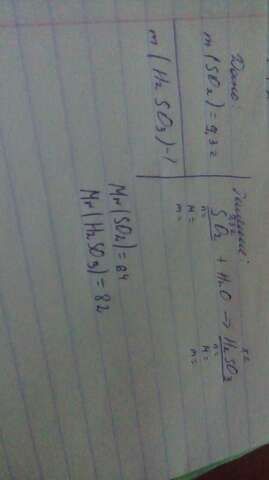 Дано:
m(SO2)=9,3г
m(H2SO3)-?
Решение:
9,3г xг
SO2 + H2O → H2SO3
n= n=
M= M=
m= m=
Mr(SO2)=64
Mr(H2SO3)=82